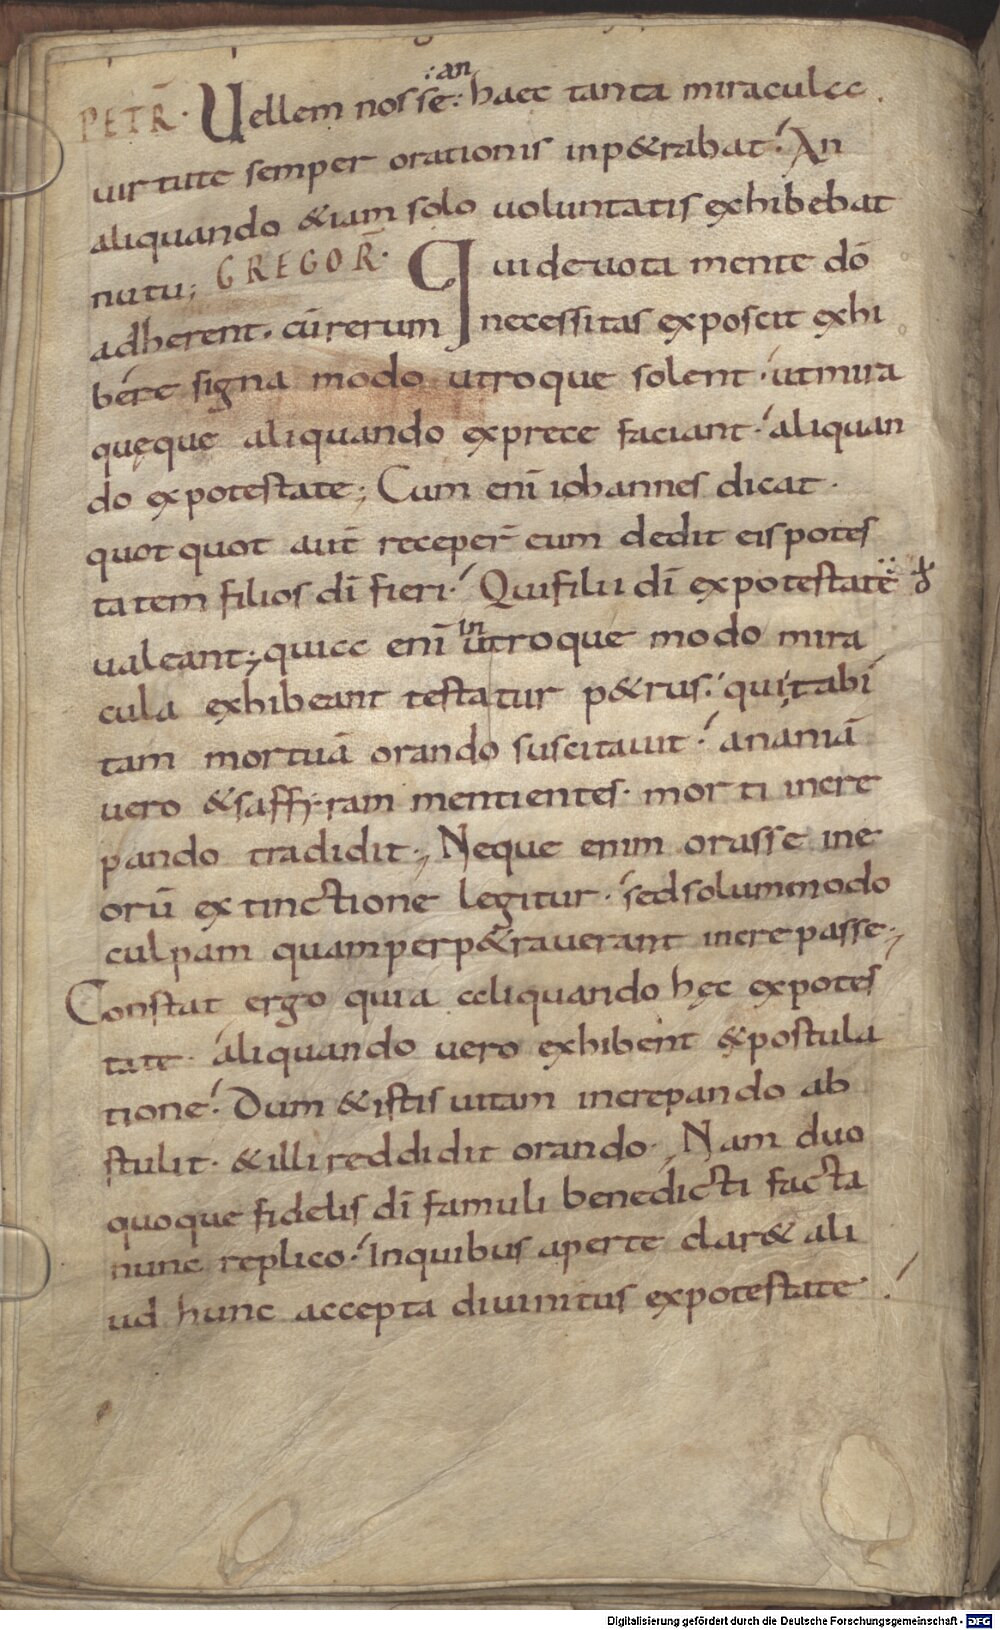 PETR̄· Uellem nosse :an: haec tanta miracula
uirtute semper orationis inp&rabat·́ An
aliquando &iam solo uoluntatis exhibebat
nutu; GREGOR̄· Qui deuota mente dō
adherent· cū rerum necessitas exposcit exhi
bére signa modo utroque solent·́ ut mira
quęque aliquando ex prece faciant·́ aliquan
do ex potestate; Cum enī iohannes dicat·
quotquot aut̄ receper̄ eum dedit eis potes
tatem filios dī fieri·́ Qui filii dī ex potestate
ualeant; quia enī in utroque modo mira
cula exhibeant testatur p&rus·́ qui tabi
tam mortuā orando suscitauit·́ ananiā
uero & saffyram mentientes· morti incre
pando tradidit; Neque enim orasse in e
orū extinctione legitur·́ sed solummodo
culpam quam perp&rauerant increpasse;
Constat ergo quia aliquando hęc ex potes
tate· áliquando uero exhibent & postula
tione·́ Dum & istis uitam increpando ab
stulit· & illi reddidit orando; Nam duo
quoque fidelis dī famuli benedicti facta
nunc replico·́ In quibus aperte clar& ali
ud hunc accepta diuinitus ex potestate·
Digitalisierung gefördert durch die Deutsche Forschungsgemeinschaft - DFG